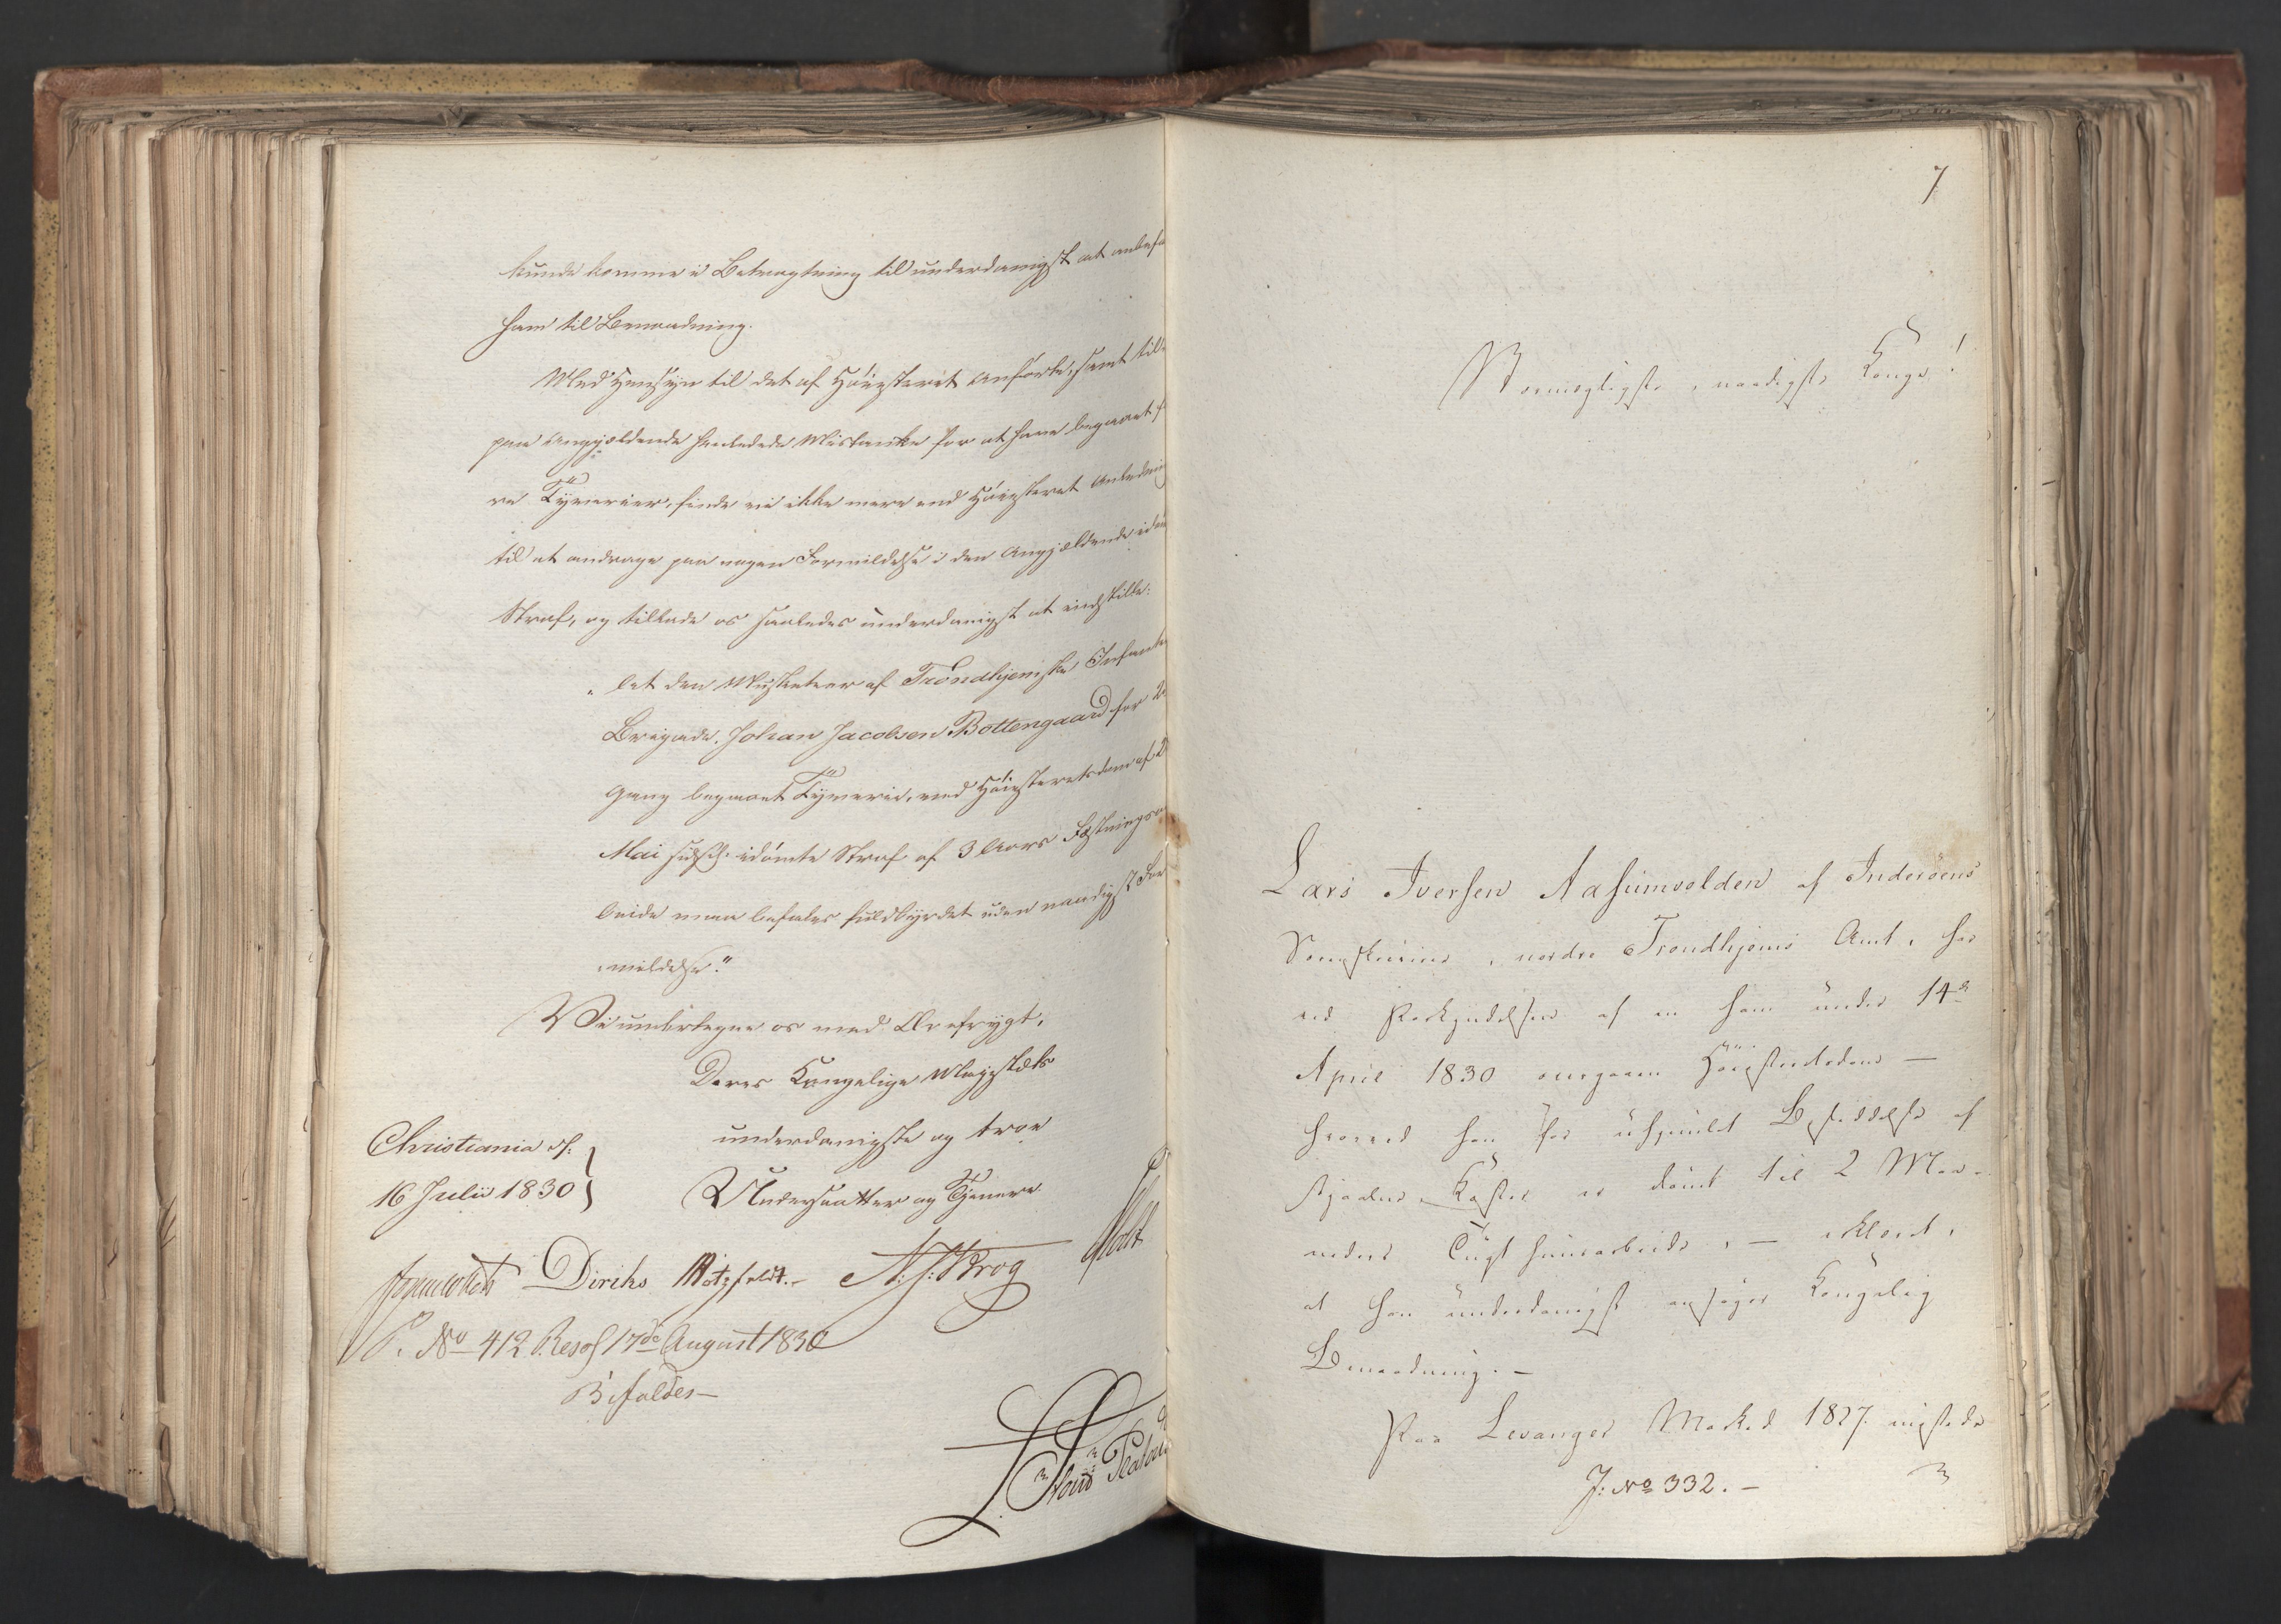 kunde komme i Betragtning til underdanigst at anbefa
ham til Benaadning.
Med Hensyn til det af Høiesteret Anførte, samt til
paa Angjældende henledede Mistanke for at have begaaet f
re Tyverier, finde vi ikke mere end Høiesteret Anledning
til at andrage paa nogen Formildelse i den Angjældende idøm
Straf, og tillade os saaledes underdanigst at indstille:
"at den Musketeer af Trondhjemske Infante
Brigade, Johan Jacobsen Bottengaard for 2
Gang begaaet Tyverie, ved Høiesteretsdom af 2
Mai sidstl. idømte Straf af 3 Aars Fæstningsar
beide maa befales fuldbyrdet uden naadigst For
mildelse."
Vi undertegne os med Ærefrygt,
Deres Kongelige Majestæts
underdanigste og troe
Undersaatter og Tjenere
Christiania d:
16 Julii 1830
Diriks Motzfeldt.- N: J: Krog Holst
P. No 412. Resol 17de August 1830
Bifaldes-
7
Stormægtigste, naadigste Konge!
Lars Iversen Aasumvolden af Inderøens
nordre Trondhjems Amt, har
ved Forkyndelsen af en ham under 14de
April 1830 overgaaen Høiesteretsdom —
hvorved han for Besiddelse af
stjaalne Koster er dømt til 2 Maa-
neders Tugthuusarbeide, — erklæret,
at han underdanigst ansøger Kongelig
Benaadning. —
Paa Levanger Marked 1827 mistede
J: No 332. —